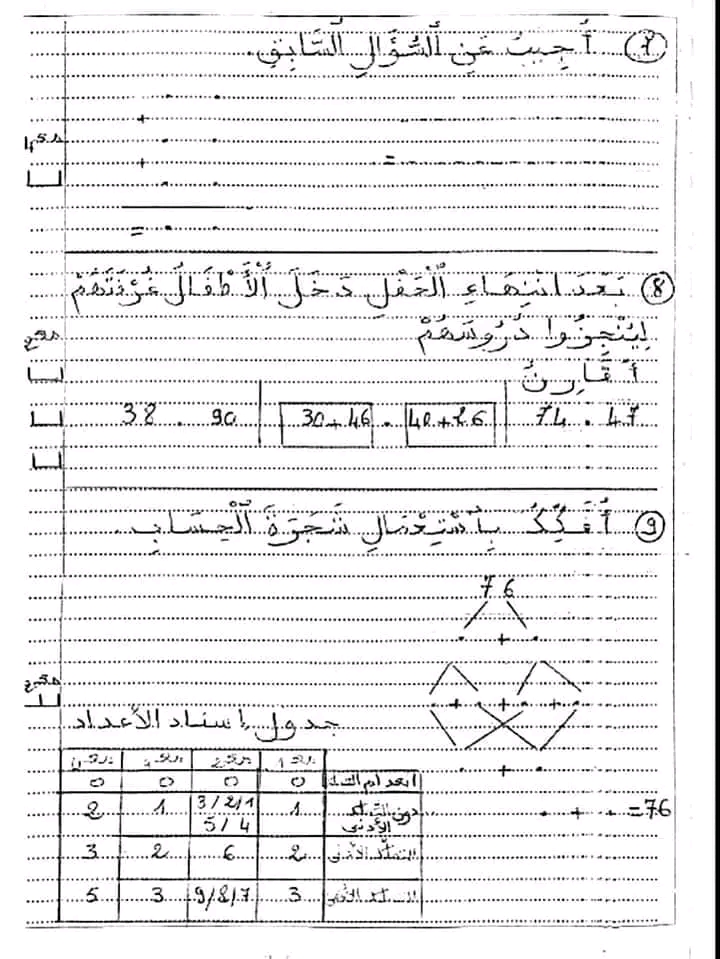 7 أُجِيبُ عَنِ ٱلسُّؤَالِ ٱلسَّابِقِ.
. .
+ . .
مع4
+ . . =
. .
= . .
8 بَعْدَ انْتِهَاءِ ٱلْحَفْلِ دَخَلَ ٱلْأَطْفَالُ غُرْفَتَهُمْ
لِيُنْجِزُوا دُرُوسَهُمْ
أُقَارِنُ
47 . 74
40+26 . 30+46
90 . 38
9 أُفَكِّكُ بِٱسْتِعْمَالِ شَجَرَةَ ٱلْحِسَابِ.
76
. + .
. + . + . + .
. + .
. + . = 76
جدول إسناد الأعداد
مع1 مع2 مع3 مع4
انعدام التملك 0 0 0 0
دون التملك الأدنى 1 3/2/1 5/4 1 2
التملك الأدنى 2 6 2 3
التملك الأقصى 3 9/8/7 3 5